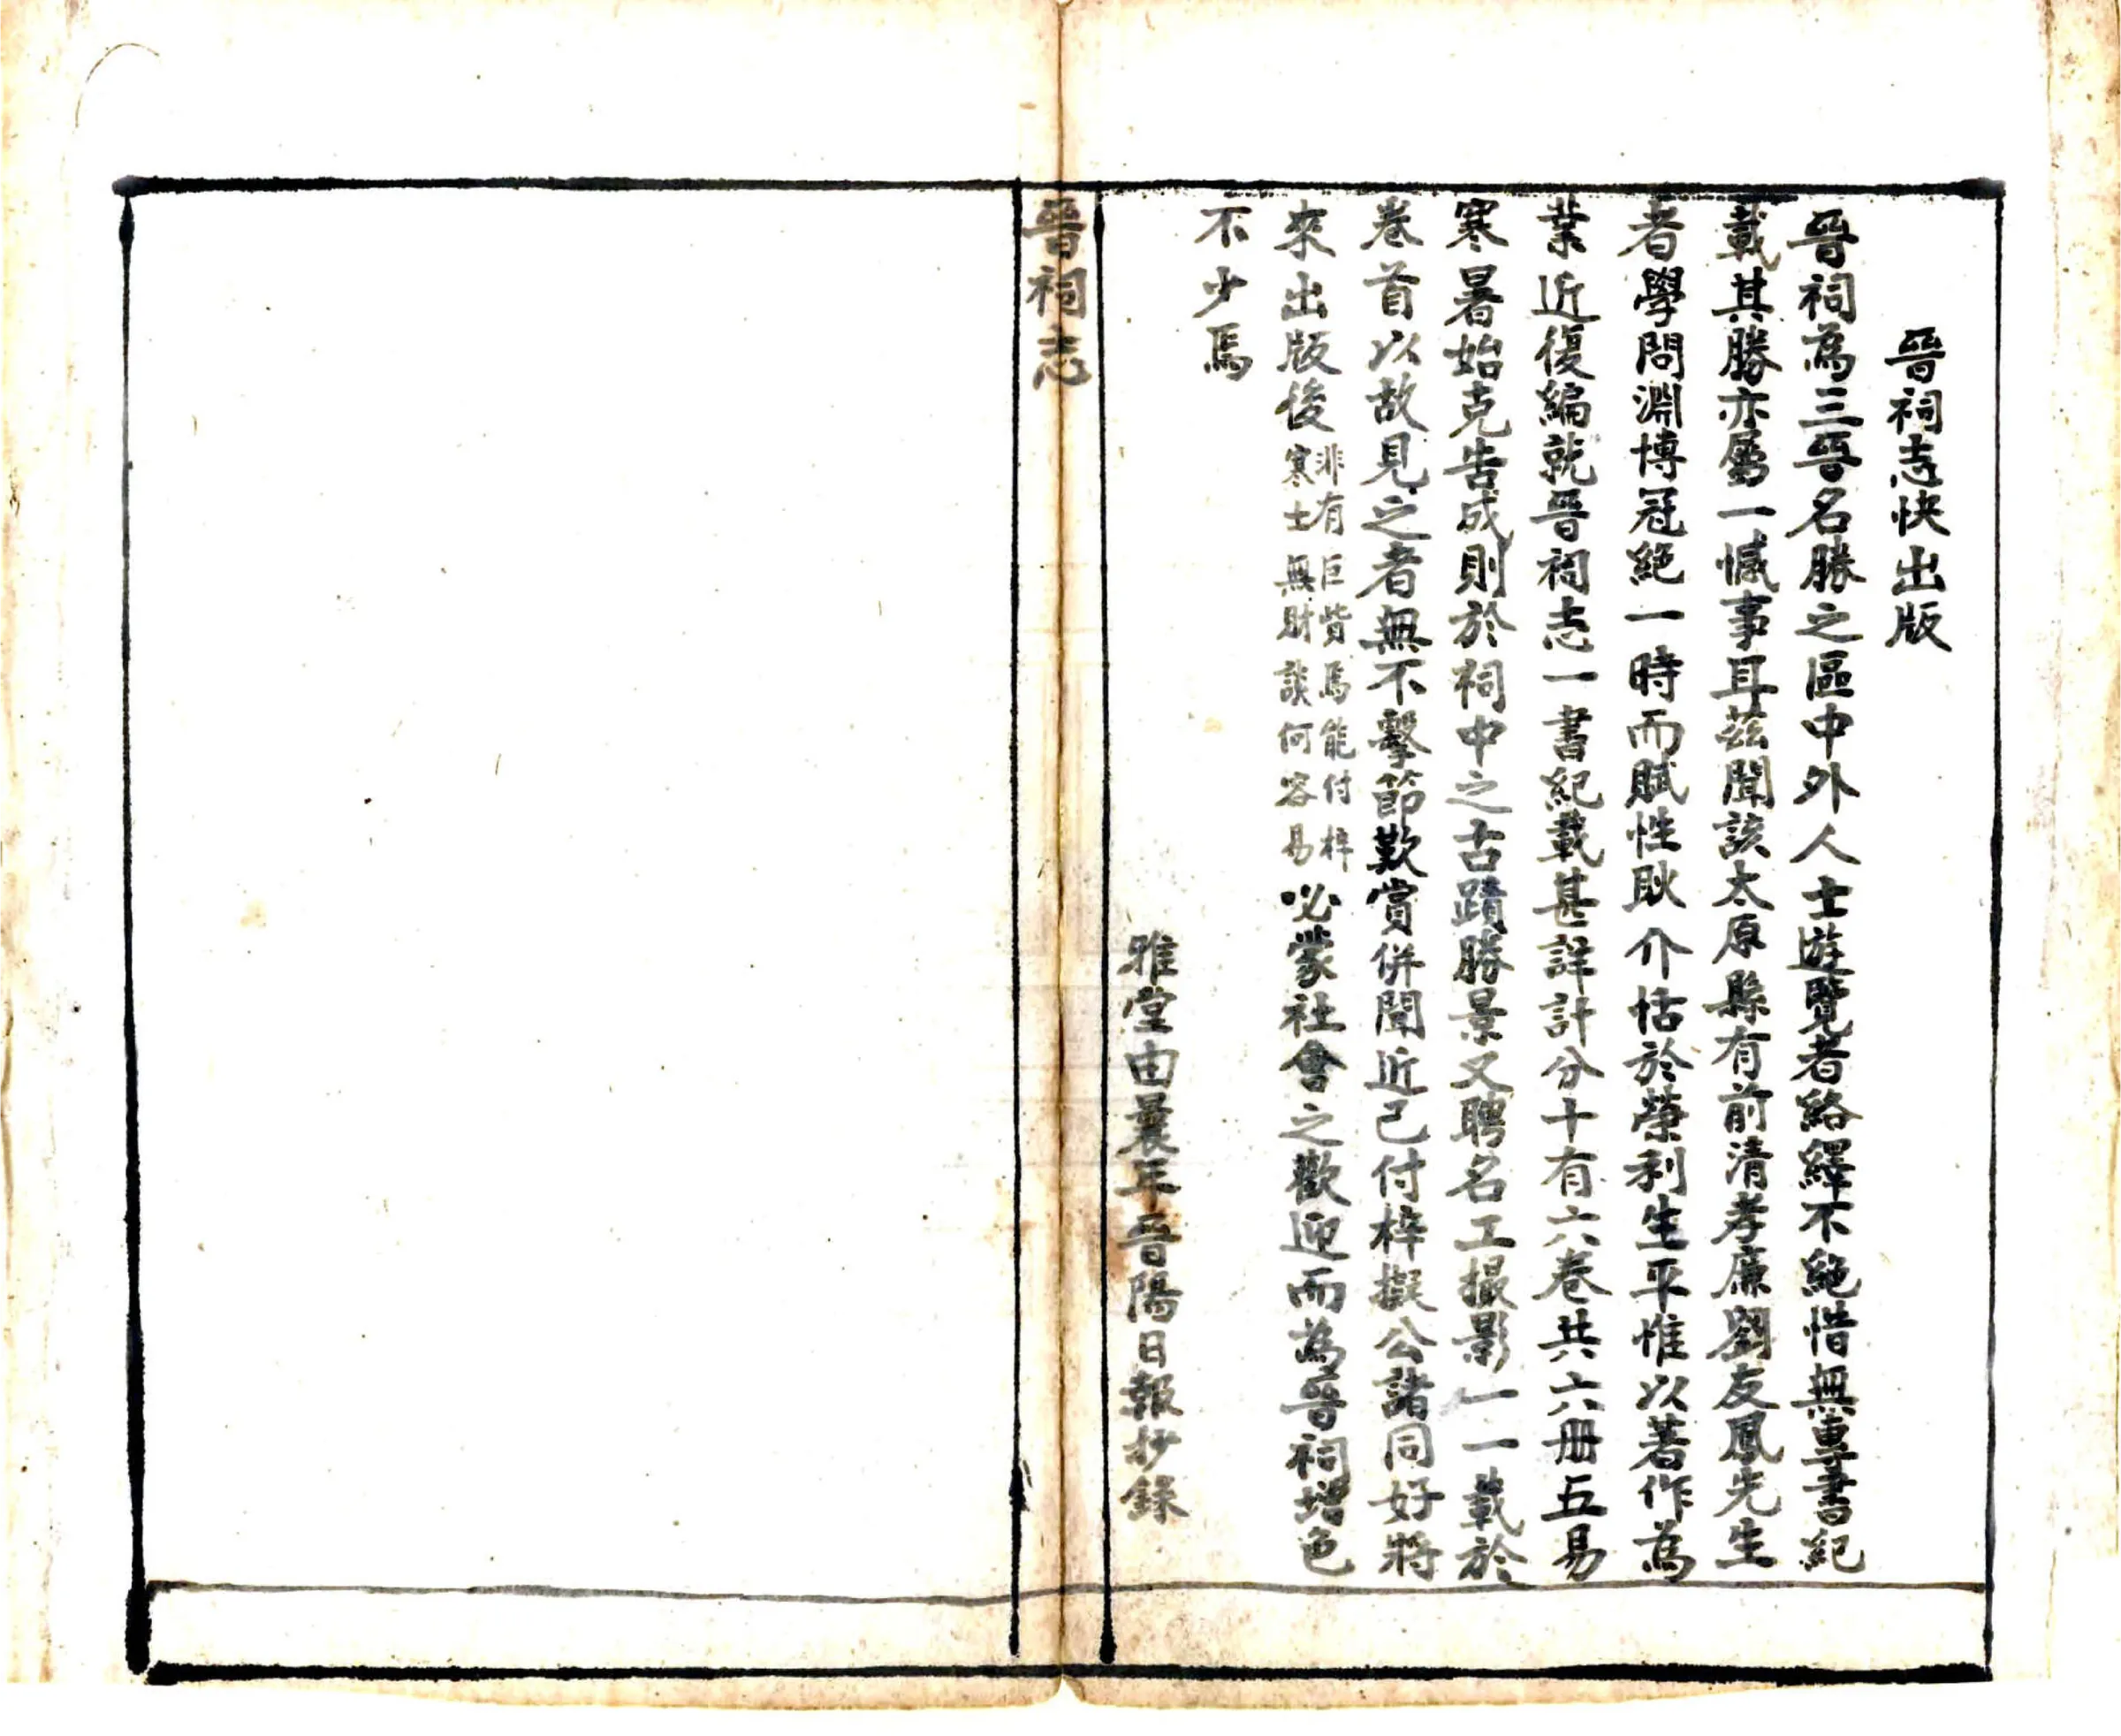 晉祠志快出版
晉祠為三晉名勝之區中外人士遊覽者絡繹不絕惜無專書紀
載其勝亦屬一憾事耳茲聞該太原縣有前清孝廉劉友鳳先生
者學問淵博冠絕一時而賦性耿介恬於榮利生平惟以著作為
業近復編就晉祠志一書紀載甚詳計分十有六卷共六册五易
寒暑始克告成則於祠中之古蹟勝景又聘名工撮影一一載於
卷首以故見之者無不擊節歎賞併聞近已付梓擬公諸同好將
來出版後非有巨貲焉能付梓寒士無財談何容易必蒙社會之歡迎而為晉祠增色
不少焉
雅堂由曩年晉陽日報抄錄
晉祠志